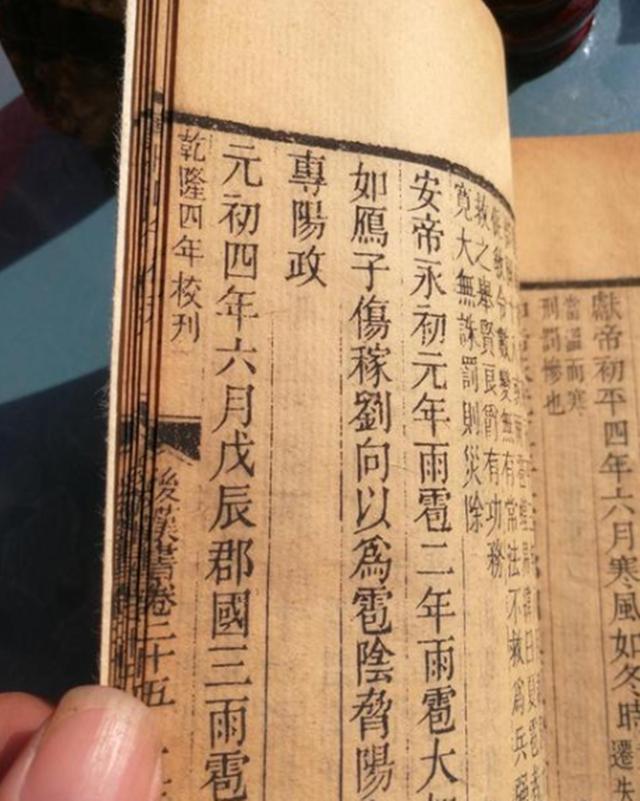 獻帝初平四年六月寒風如冬時遷失
當溫而寒
刑罰慘也
令數變無有常法不救為兵強
救之舉賢良爵有功務
寬大無誅罰則災除
安帝永初元年雨雹二年雨雹大
如鴈子傷稼劉向以爲雹陰脅陽
專陽政
元初四年六月戊辰郡國三雨雹
乾隆四年校刊
後漢書卷二十五